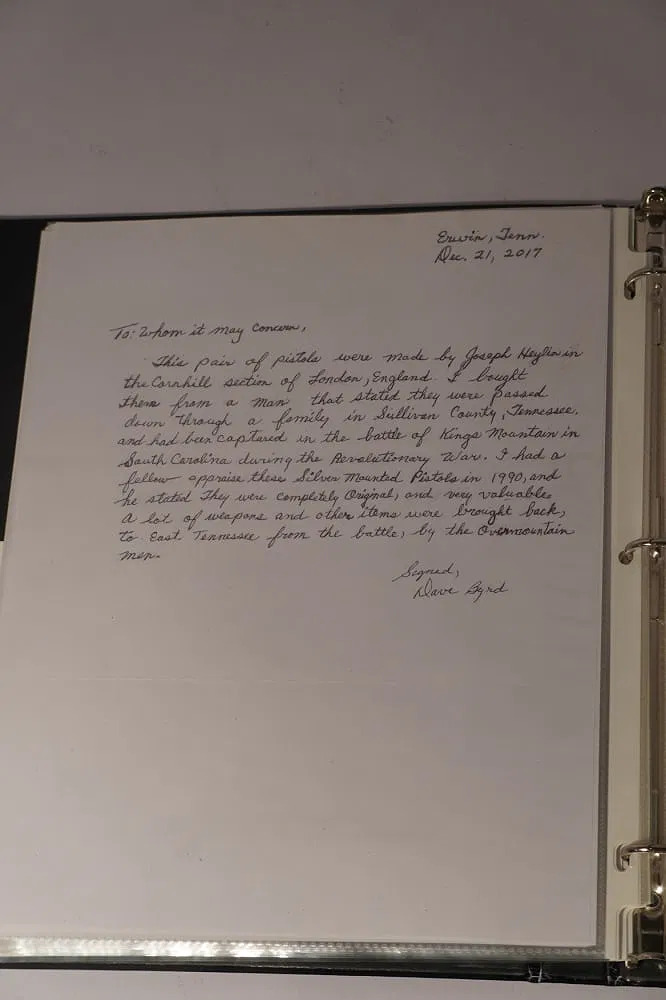 Erwin, Tenn.
Dec. 21, 2017
To: Whom it may Concern,
This pair of pistols were made by Joseph Heylin in
the Cornhill section of London, England. I bought
them from a man that stated they were passed
down through a family in Sullivan County, Tennessee,
and had been captured in the battle of Kings Mountain in
South Carolina during the Revolutionary War. I had a
fellow appraise these Silver Mounted Pistols in 1990, and
he stated They were completely Original, and very valuable.
A lot of weapons and other items were brought back,
to East Tennessee from the battle, by the Overmountain
men.
Signed,
Dave Byrd